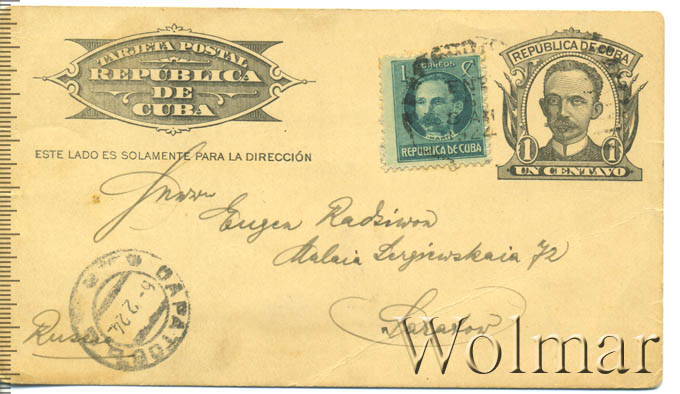 TARJETA POSTAL
REPÚBLICA
DE
CUBA
ESTE LADO ES SOLAMENTE PARA LA DIRECCIÓN
CORREOS
1 C
REPÚBLICA DE CUBA
REPÚBLICA DE CUBA
1 1
UN CENTAVO
Herrn
Eugen Radziwon
Malaia Sergiewskaia 72
Saratow
САРАТОВ
6-2 24
Russia
Wolmar